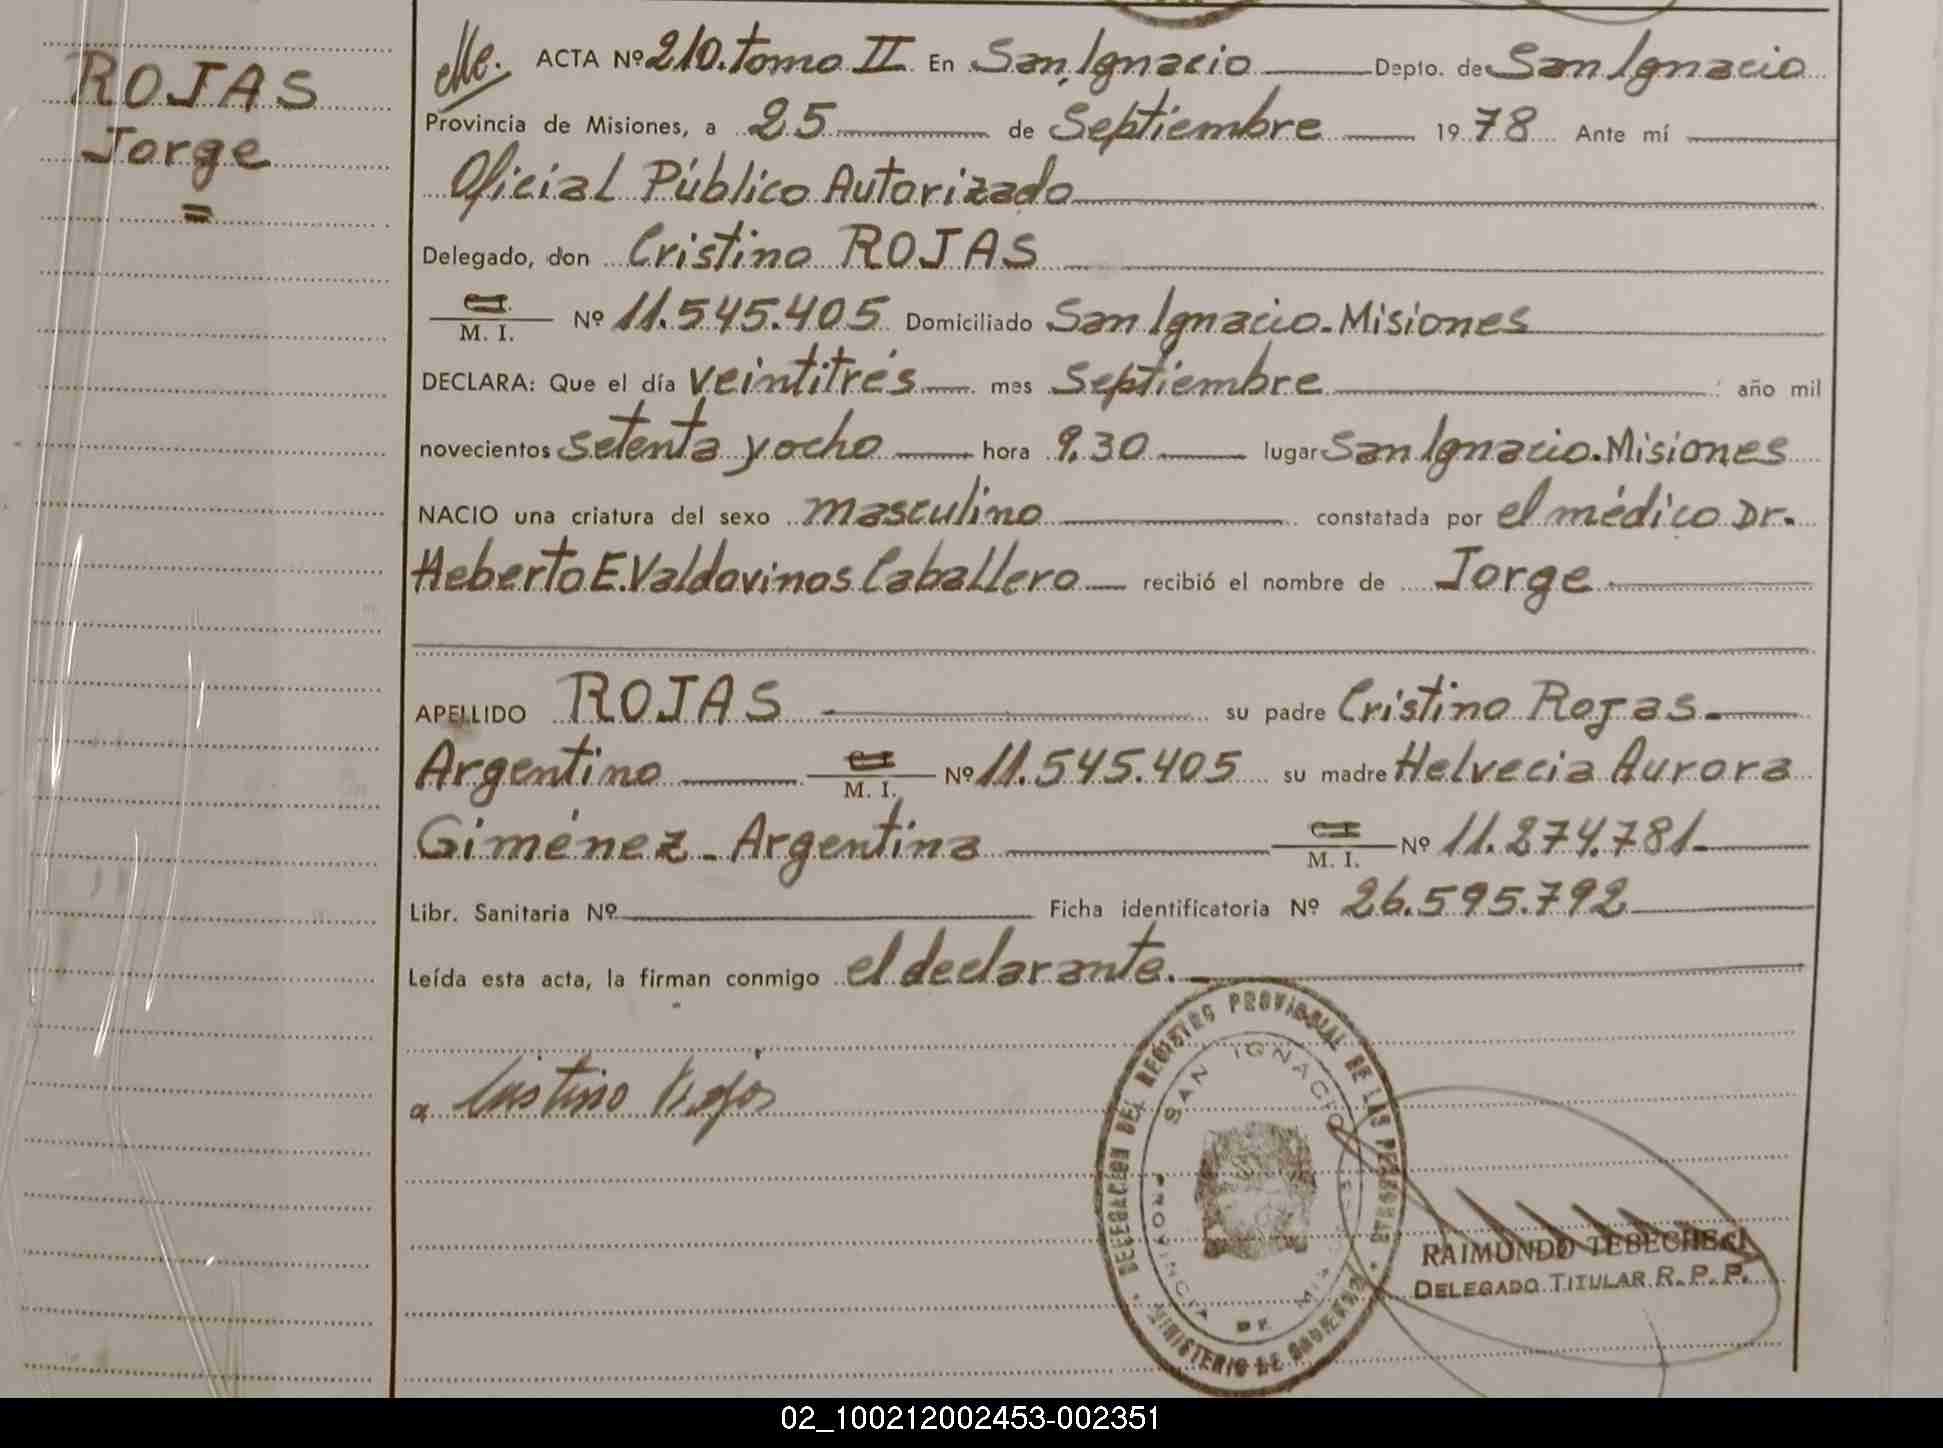 ROJAS
Jorge
=
ACTA Nº 210. tomo II En San Ignacio Depto. de San Ignacio
Provincia de Misiones, a 25 de Septiembre 1978 Ante mí
Oficial Público Autorizado
Delegado, don Cristino ROJAS
C.I.
M. I. Nº 11.545.405 Domiciliado San Ignacio. Misiones
DECLARA: Que el día veintitrés mes Septiembre año mil
novecientos setenta y ocho hora 9,30 lugar San Ignacio. Misiones
NACIO una criatura del sexo masculino constatada por el médico Dr.
Heberto E. Valdovinos Caballero recibió el nombre de Jorge
APELLIDO ROJAS su padre Cristino Rojas
Argentino C.I. M. I. Nº 11.545.405 su madre Helvecia Aurora
Giménez - Argentina C.I. M. I. Nº 11.274.781
Libr. Sanitaria Nº Ficha identificatoria Nº 26.595.792
Leída esta acta, la firman conmigo el declarante.
Cristino Rojas
DELEGACION DEL REGISTRO PROVINCIAL DE LAS PERSONAS
SAN IGNACIO
PROVINCIA DE MIS
MINISTERIO DE GOBIERNO
RAIMUNDO TEBECHE
DELEGADO TITULAR R. P. P.
02_100212002453-002351